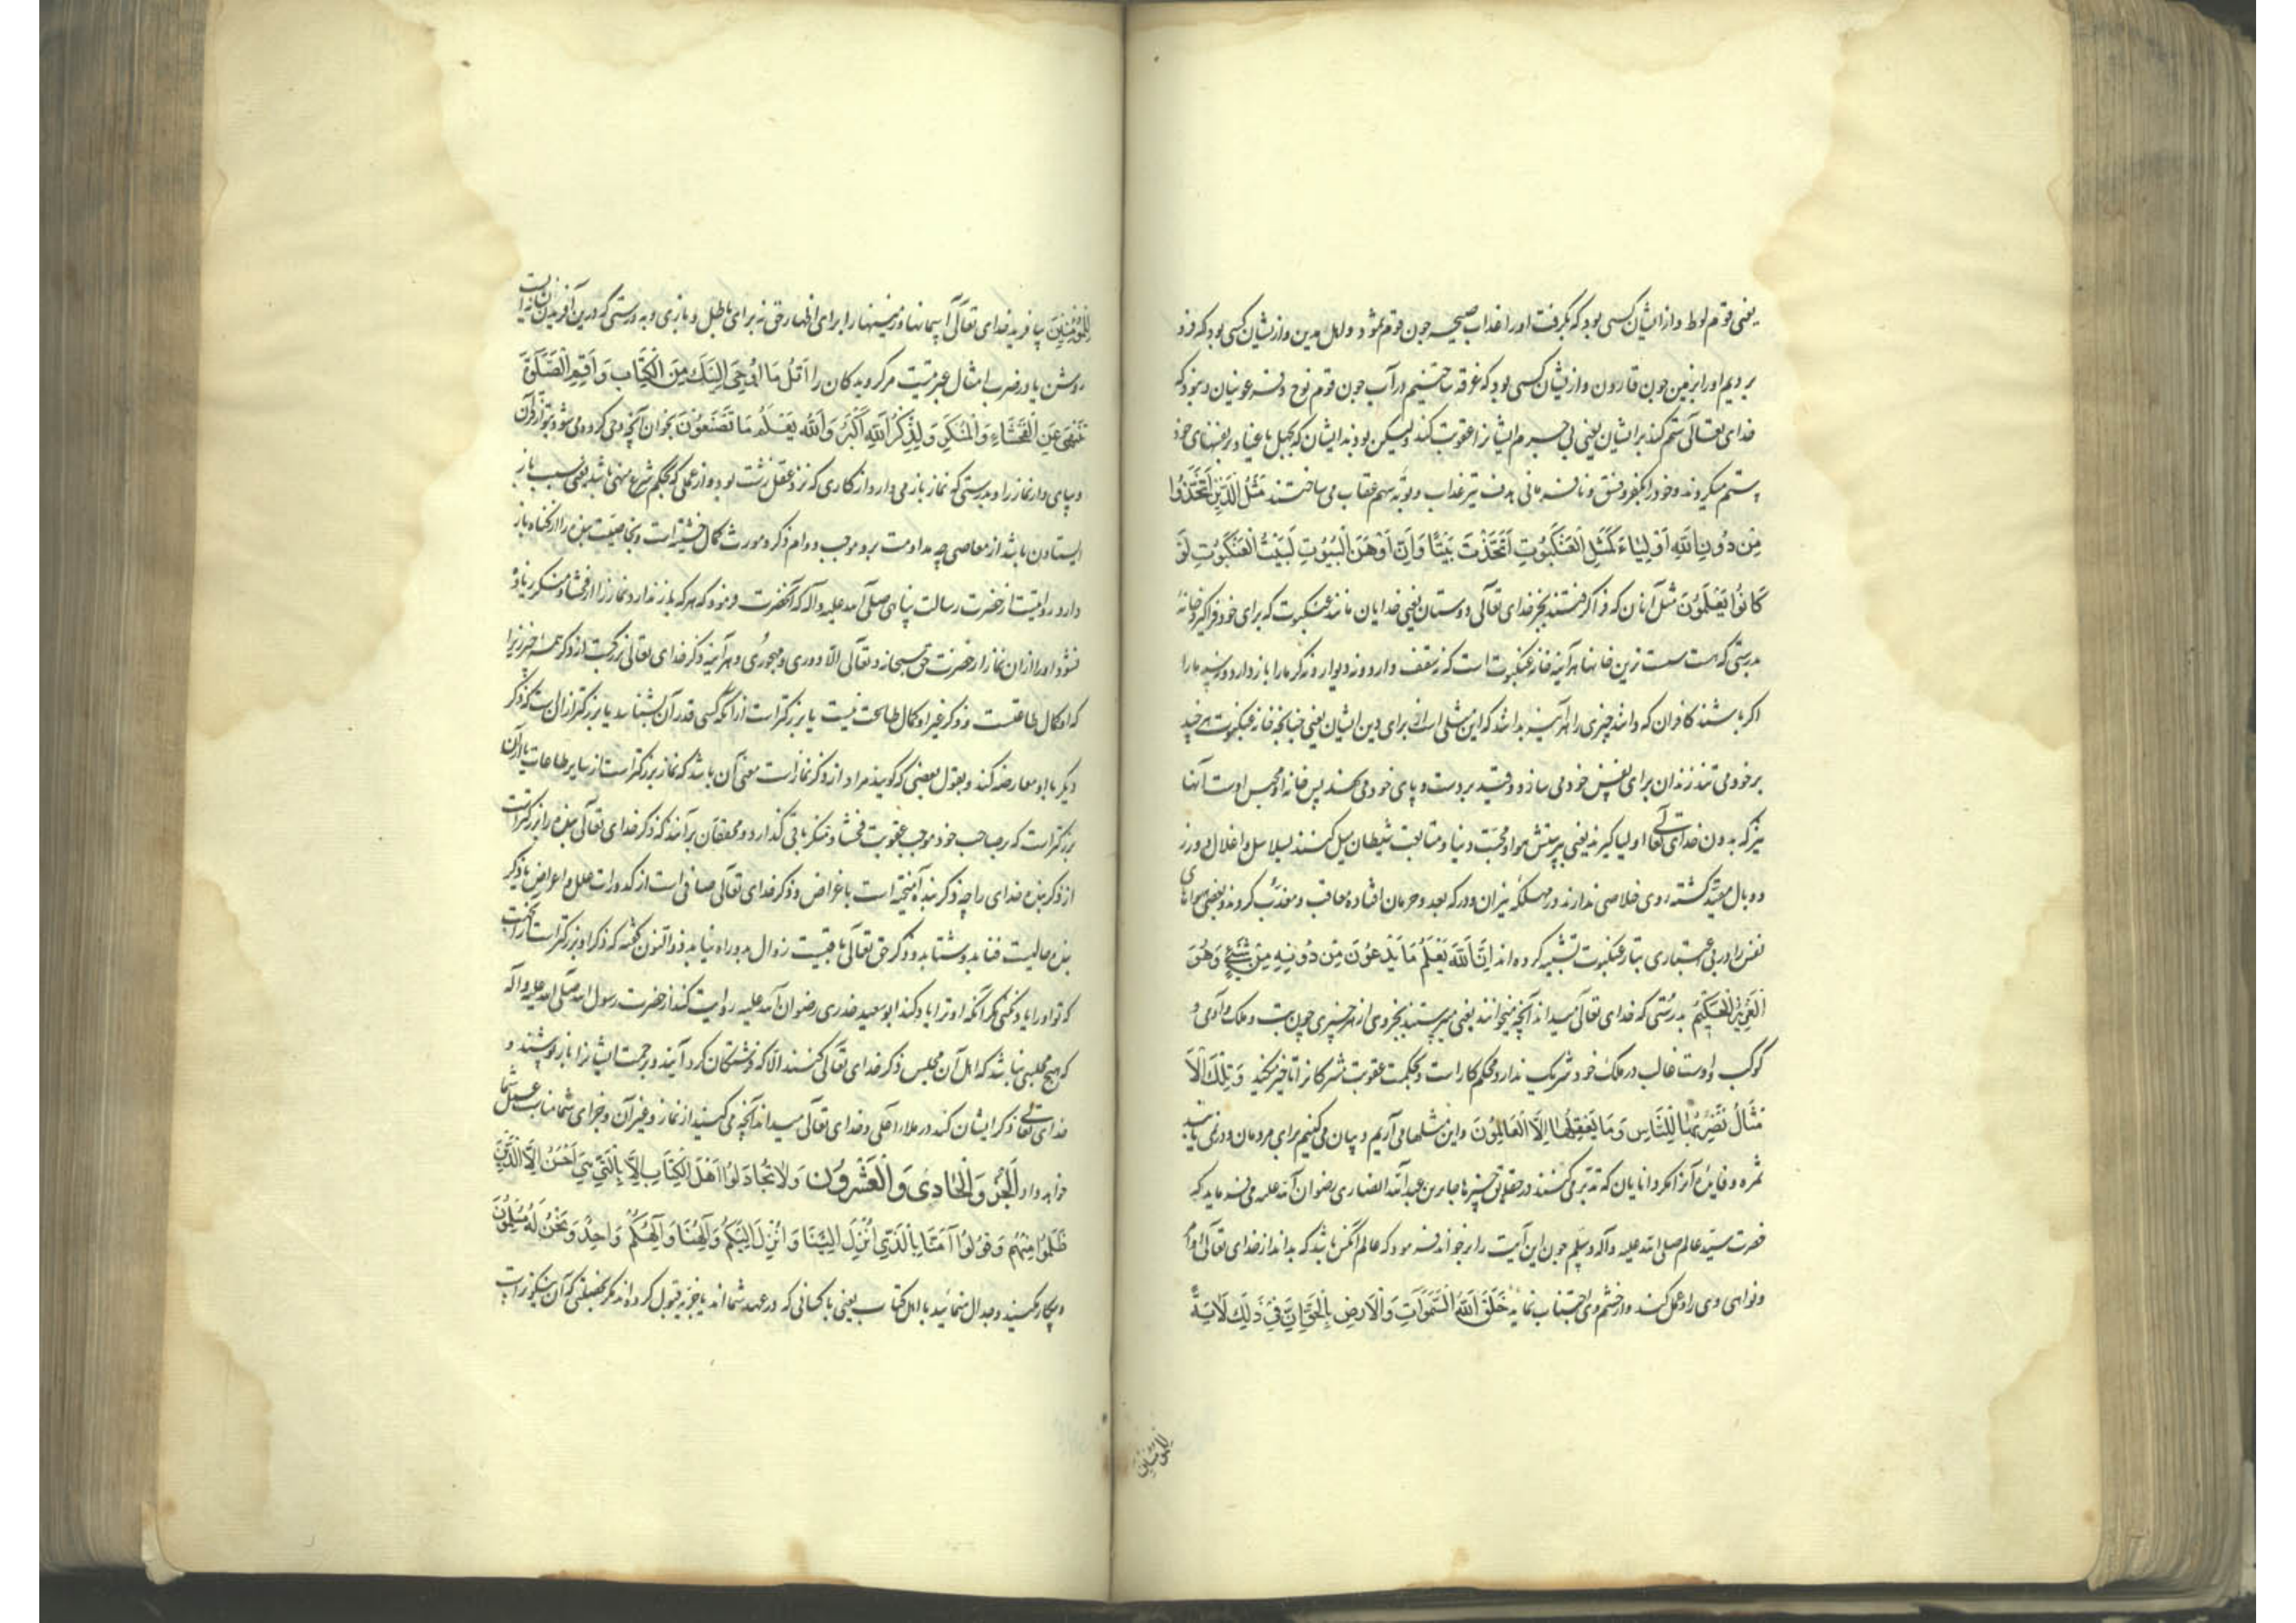 یعنی قوم لوط و از ایشان کسی بود که بگرفت او را عذاب صیحه چون قوم ثمود و اهل مدین و از یشان کسی بود که فرو
بردیم او را بزمین چون قارون و از یشان کسی بود که غرقه ساختیم در آب چون قوم نوح و فرعونیان و نبود که
خدای تعالی ستم کند بر ایشان یعنی بی جرم ایشانرا عقوبت کند ولیکن بودند ایشان که بجهل با عناد بر نفسهای خود
ستم میکردند و خود را بکفر و فسق و نافرمانی هدف تیر عذاب و توبه سهم عقاب می ساختند مَثَلُ الَّذِینَ اتَّخَذُوا
مِن دُونِ اللهِ اَوْلِیَاءَ کَمَثَلِ الْعَنْکَبُوتِ اتَّخَذَتْ بَیْتًا وَاِنَّ اَوْهَنَ الْبُیُوتِ لَبَیْتُ الْعَنْکَبُوتِ لَوْ
کَانُوا یَعْلَمُونَ مثل آنان که فرا گرفتند بجز خدای تعالی دوستان یعنی خدایان مانند عنکبوت که برای خود فرا گیرد خانهٔ
بدرستی که هست سست زین خانها هر آینه خانه عنکبوت است که نه سقف دارد و نه دیوار و نه گرما را باز دارد و نه سرما را
اگر باشند کافران که دانند چیزی را هر آینه بدانند که این مثلی است از برای دین ایشان یعنی چنانچه خانه عنکبوت هر چند
بر خود می تند زندان برای نفس خود می سازد و قید بر دست و پای خود می نهد پس خانه او محبس اوست آنها
نیز که بدون خدای تعالی اولیا گیرند یعنی پرستش هوا و محبت دنیا و متابعت شیطان میل کنند بسلاسل و اغلال و وزر
و وبال مقید گشته روی خلاصی ندارند در مهلکهٔ نیران و درکه بعد و حرمان افتاده معاقب و معذب گردند و بعضی هواهای
نفس را در بی اعتباری بتار عنکبوت تشبیه کرده اند اِنَّ اللهَ یَعْلَمُ مَا یَدْعُونَ مِن دُونِهِ مِن شَیْءٍ وَهُوَ
الْعَزِیزُ الْحَکِیمُ بدرستی که خدای تعالی میداند آنچه میخوانند یعنی میپرستند بجز وی از هر چیزی چون بت و ملک و آدمی و
کوکب و اوست غالب در ملک خود شریک ندارد و محکم کار است و بحکمت عقوبت مشرکانرا تاخیر میکند وَتِلْکَ الْاَ
مْثَالُ نَضْرِبُهَا لِلنَّاسِ وَمَا یَعْقِلُهَا اِلَّا الْعَالِمُونَ و این مثلها می آریم و بیان می کنیم برای مردمان و در نمی یابند
ثمره و فایدهٔ آنرا مگر دانایان که تدبر می کنند در حقایق چیزها جابر بن عبد الله انصاری رضوان الله علیه می فرماید که
حضرت سید عالم صلی الله علیه و آله و سلم چون این آیت را بر خواند فرمود که عالم آنکس باشد که بداند از خدای تعالی اوامر
و نواهی وی را و عمل کند و از خشم وی اجتناب نماید خَلَقَ اللهُ السَّمٰوَاتِ وَالْاَرْضَ بِالْحَقِّ اِنَّ فِی ذٰلِکَ لَاٰیَةً
للمؤمنین
لِلْمُؤْمِنِینَ بیافرید خدای تعالی آسمانها و زمینها را برای اظهار حق نه برای باطل و بازی و بدرستی که در این آفریدن نشانه ایست
روشن یا در ضرب امثال عبرتیست مر گرویدگان را اُتْلُ مَا اُوحِیَ اِلَیْکَ مِنَ الْکِتَابِ وَاَقِمِ الصَّلٰوةَ
تَنْهٰی عَنِ الْفَحْشَاءِ وَالْمُنْکَرِ وَلَذِکْرُ اللهِ اَکْبَرُ وَاللهُ یَعْلَمُ مَا تَصْنَعُونَ بخوان آنچه وحی کرده می شود بتو از قرآن
و بپای دار نماز را و بدرستی که نماز باز می دارد از کاری که نزد عقل زشت بود و از عملی که بحکم شرع منهی باشد یعنی سبب باز
ایستادن باشد از معاصی چه مداومت برو موجب دوام ذکر و مورث کمال خشیتست و بخاصیت بنده را از گناه باز
دارد روایتست از حضرت رسالت پناهی صلی الله علیه و آله که آنحضرت فرمود که هر که باز ندارد نماز او را از فحشا و منکر زیاده
نشود او را از ان نماز از حضرت حق سبحانه و تعالی الا دوری و مهجوری و هر آینه ذکر خدای تعالی بزرگست از ذکر همه چیز زیرا
که او کمال طاعتست و ذکر غیر او کمال طاعت نیست یا بزرگتر است از آنکه کسی قدر آن بشناسد یا بزرگتر از ان است که ذکر
دیگر با او معارضه کند و بقول بعضی که گویند مراد از ذکر نماز است معنی آن باشد که نماز بزرگتر است از سایر طاعات یا از آن
بزرگتر است که بر صاحب خود موجب عقوبت فحشا و منکر باقی گذارد و محققان بر آنند که ذکر خدای تعالی بنده را بزرگتر است
از ذکر بنده خدای را چه ذکر بنده آمیخته است باغراض و ذکر خدای تعالی صافی است از کدورات علل و اعراض یا ذکر
بنده حالیست فنا بدو شتابد و ذکر حق تعالی باقیست زوال بدو راه نیابد ذو النون گفته که ذکر او بزرگتر است از آنجهت
که تو او را یاد نکنی مگر آنکه او ترا یاد کند ابو سعید خدری رضوان الله علیه روایت کند از حضرت رسول الله صلی الله علیه و آله
که هیچ مجلسی نباشد که اهل آن مجلس ذکر خدای تعالی کنند الا که فرشتگان گرد آیند و برحمت ایشانرا باز پوشند و
خدای تعالی ذکر ایشان کند در ملاء اعلی و خدای تعالی میداند آنچه می کنید از نماز و غیر آن و جزای شما مناسب عمل شما
خواهد داد الْجُزْؤُ الْحَادِی وَالْعَشْرُونَ وَلَا تُجَادِلُوا اَهْلَ الْکِتَابِ اِلَّا بِالَّتِی هِیَ اَحْسَنُ اِلَّا الَّذِینَ
ظَلَمُوا مِنْهُمْ وَقُولُوا اٰمَنَّا بِالَّذِی اُنْزِلَ اِلَیْنَا وَاُنْزِلَ اِلَیْکُمْ وَاِلٰهُنَا وَاِلٰهُکُمْ وَاحِدٌ وَنَحْنُ لَهُ مُسْلِمُونَ
و پیکار مکنید و جدال منمائید با اهل کتاب یعنی با کسانی که در عهد شما اند یا جزیه قبول کرده اند مگر بخصلتی که آن نیکوتر است